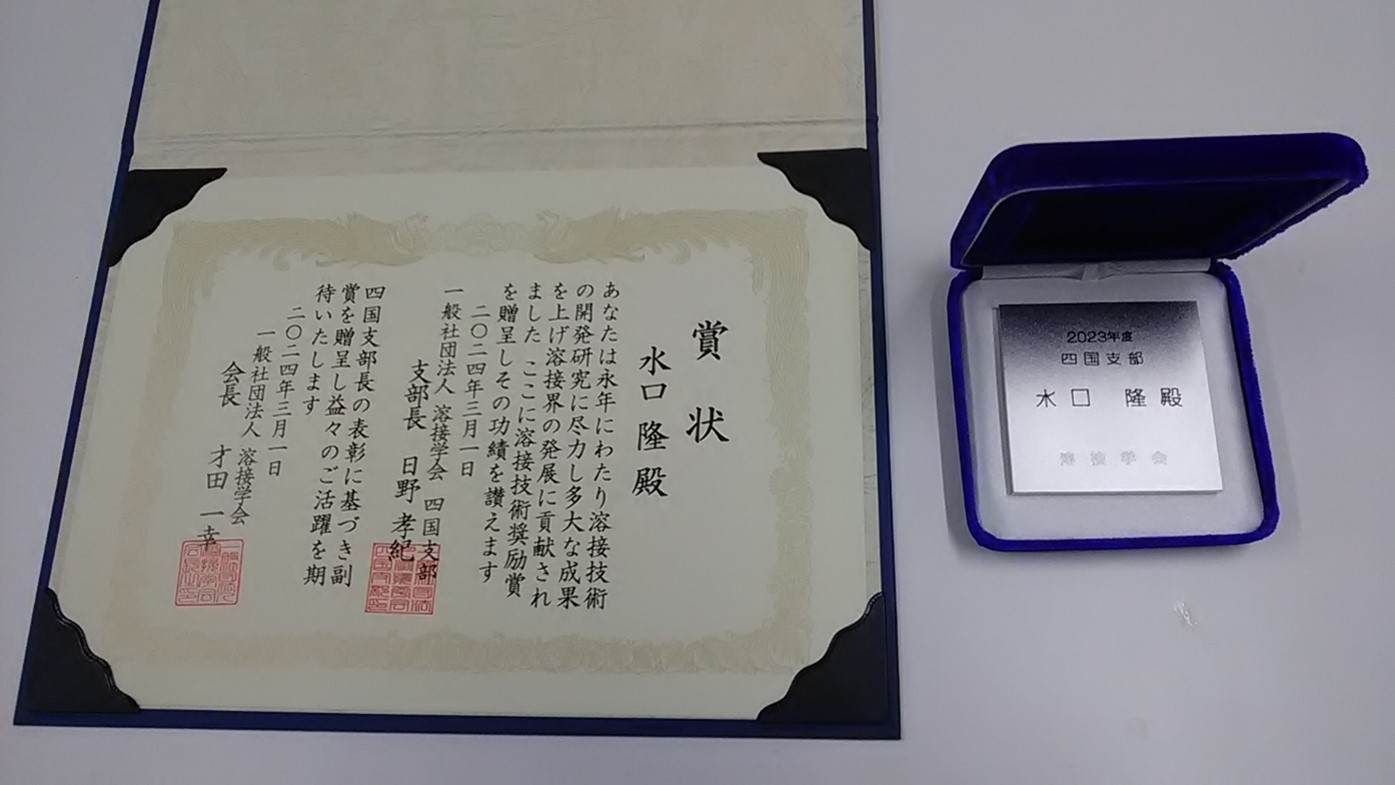 賞状
水口隆殿
あなたは永年にわたり溶接技術
の開発研究に尽力し多大な成果
を上げ溶接界の発展に貢献され
ました ここに溶接技術奨励賞
を贈呈しその功績を讃えます
二〇二四年三月一日
一般社団法人 溶接学会 四国支部
支部長 日野孝紀
四国支部長の表彰に基づき副
賞を贈呈し益々のご活躍を期
待いたします
二〇二四年三月一日
一般社団法人 溶接学会
会長 才田一幸
2023年度
四国支部
水口 隆殿
溶接学会